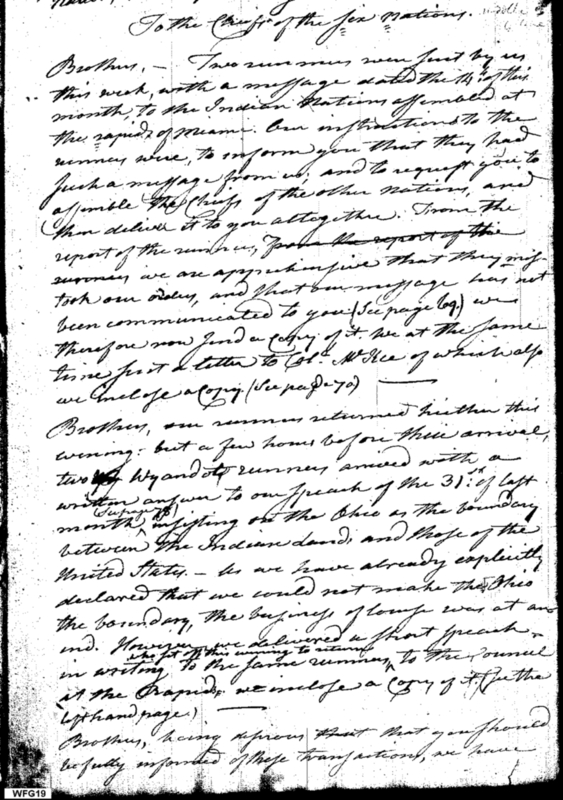 To the Chiefs of the Six Nations.
Brothers, — Two runners were sent by us
this week, with a message dated the 14th of this
month, to the Indian Nations assembled at
the rapids of Miami. Our instructions to the
runners were, to inform you that they had
such a message from us; and to request you to
assemble the Chiefs of the other Nations, and
then deliver it to you altogether. From the
report of the runners, from the report of the
runners we are apprehensive that they mis-
took our orders, and that our message has not
been communicated to you (See page 69.) we
therefore now send a Copy of it. We at the same
time sent a letter to Col. McKee of which also
we inclose a Copy (See page 70)
Brothers, our runners returned hither this
evening: but a few hours before their arrival,
two Wyandot runners arrived with a
written answer to our speech of the 31st of last
(See page 78)
month, insisting on the Ohio as the boundary
between the Indian Lands and those of the
United States. — As we have already explicitly
declared that we could not make the Ohio
the boundary, the business of course was at an
end. However we delivered a short speech
who set off this evening to return
in writing to the same runners, to the Council
at the Rapids. we inclose a Copy of it, (See the
left hand page.)
Brothers, being desirous that that you should
be fully informed of these transactions, we have
WFG19